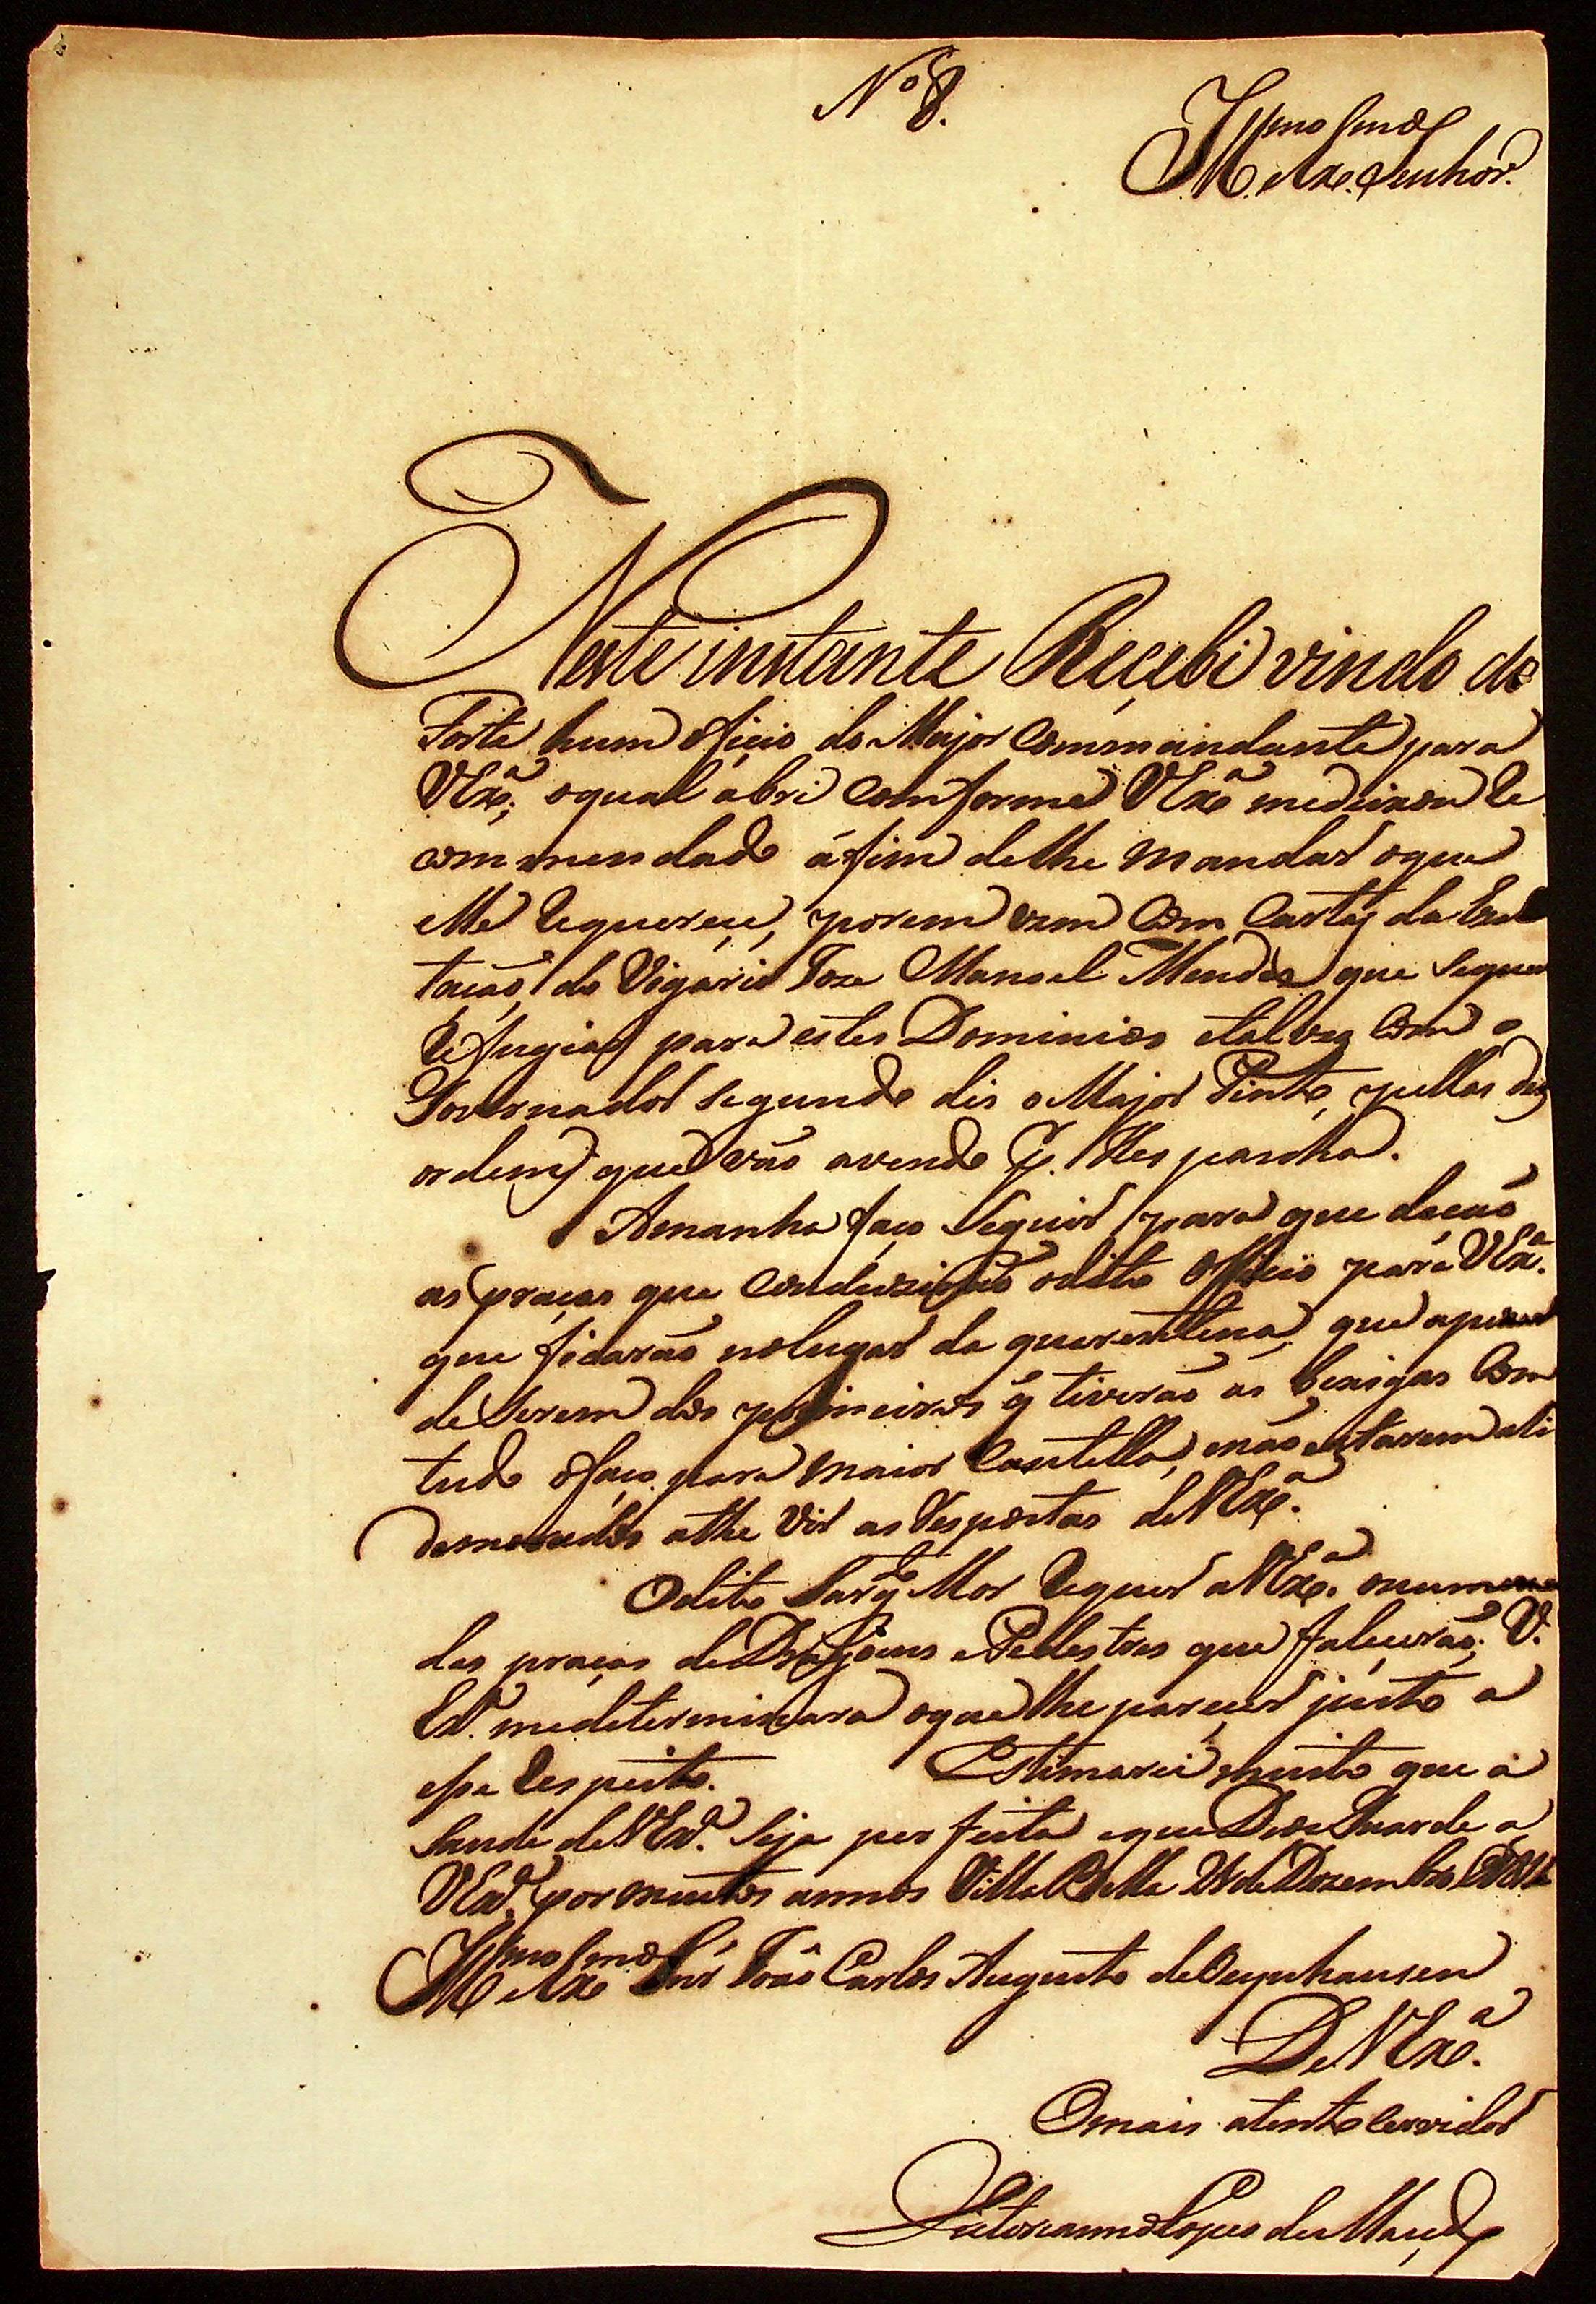 Nº 8.
Illmo Snor
M. e Exo. Senhor.
Neste instante Reçebi vindo do
Forte hum ofiçio do Major Commandante para
VExª; oqual abri comforme VExª medeixou Re
commendado áfim delhe mandar oque
elle Requereçe, porem vem com Cartas da
tação, do Vigario Joze Manoel Mendes que sequer
Refugiar para estes Dominios etalvez com o
Governador segundo dis o Major Pinto, pellas dez
ordens que vão avendo p. Hespanha.
Amanha faço Seguir para que deção
as praças que Conduzirão odito Officio para VExª.
que ficarão nolugar da quarentena, que apezar
de serem dos primeiros q̃ tiverão as bexigas Com
tudo ofaço para maior Cautella, enão estarem ali
demorados athe vir as Respostas deVExª.
Odito Sargto Mor Requer aVExª. onumero
das praças deDragoens ePedestres que faleçerão; V.
Exª. medeterminara oque lhe pareçer justo a
esse Respeito. Estimarei muito que a
Saude deVExª. Seja perfeita eque Deos Guarde a
VExª. por muitos annos Villa Bella 28 de Dezembro de
Illmo e Exmo Snr João Carlos Augusto deOeynhausen
DeVExª.
Omais atento Servidor
Lopes de Maçedo